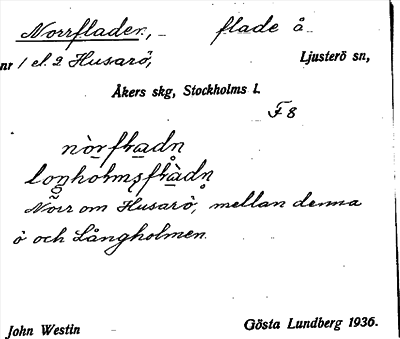 Norrfladen, flade å
nr 1 el. 2 Husarö, Ljusterö sn,
Åkers skg, Stockholms l.
F8
nòrfladn
loŋholmsflàdn
Norr om Husarö, mellan denna
ö och Långholmen.
John Westin Gösta Lundberg 1936.